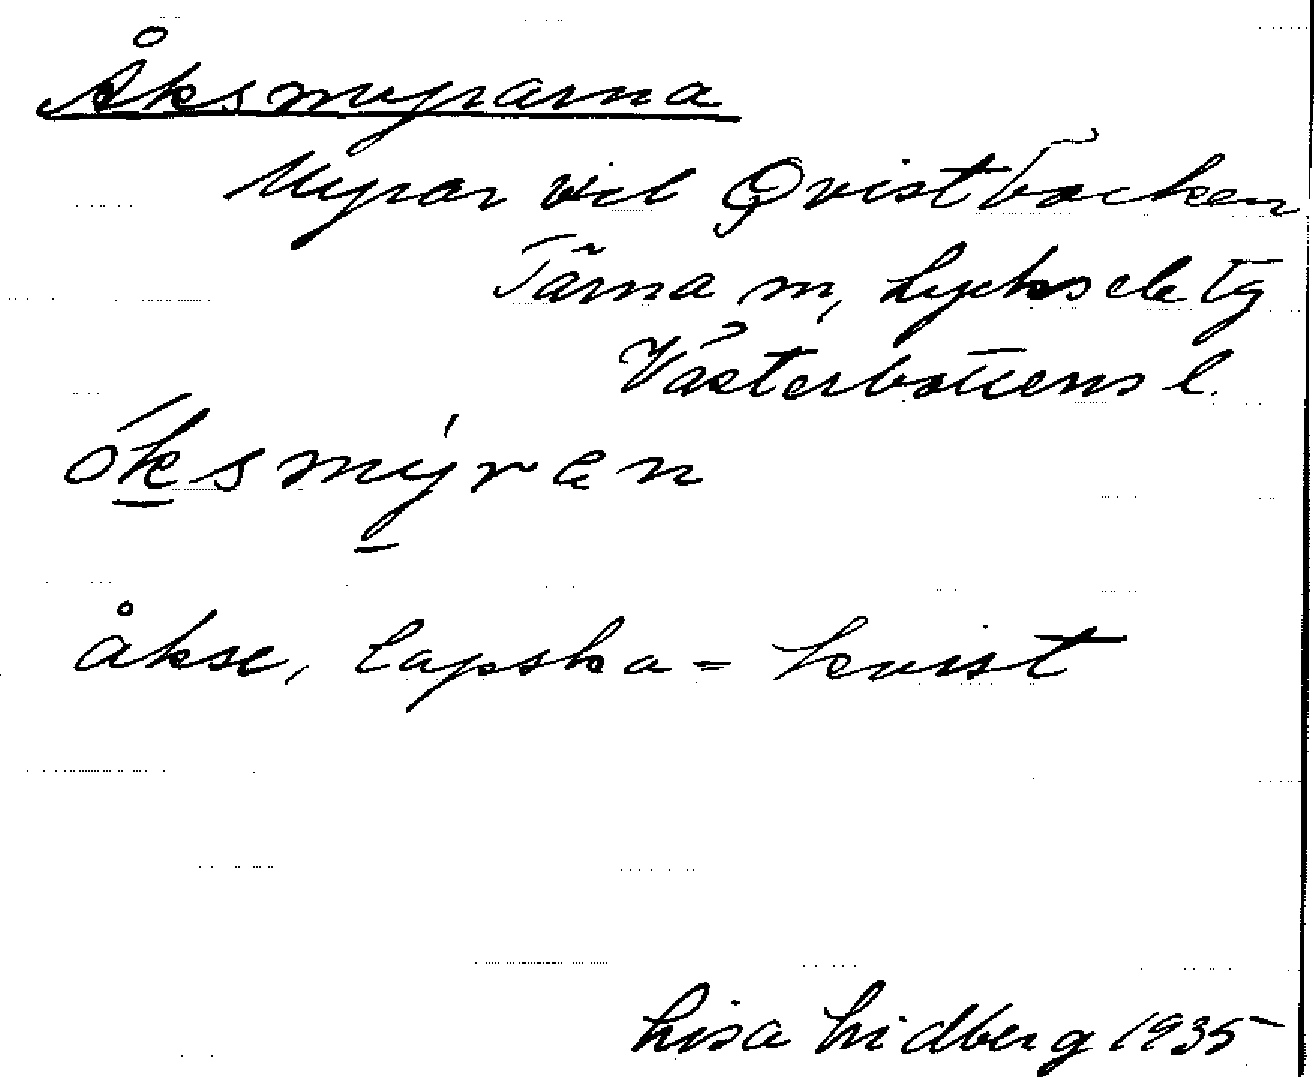 Åksmyrarna
Myrar vid Qvistbäcken
Tärna sn, Lycksele tg
Västerbottens l.
óksmýran
åkse, lapska = kvist
Lisa Lidberg 1935